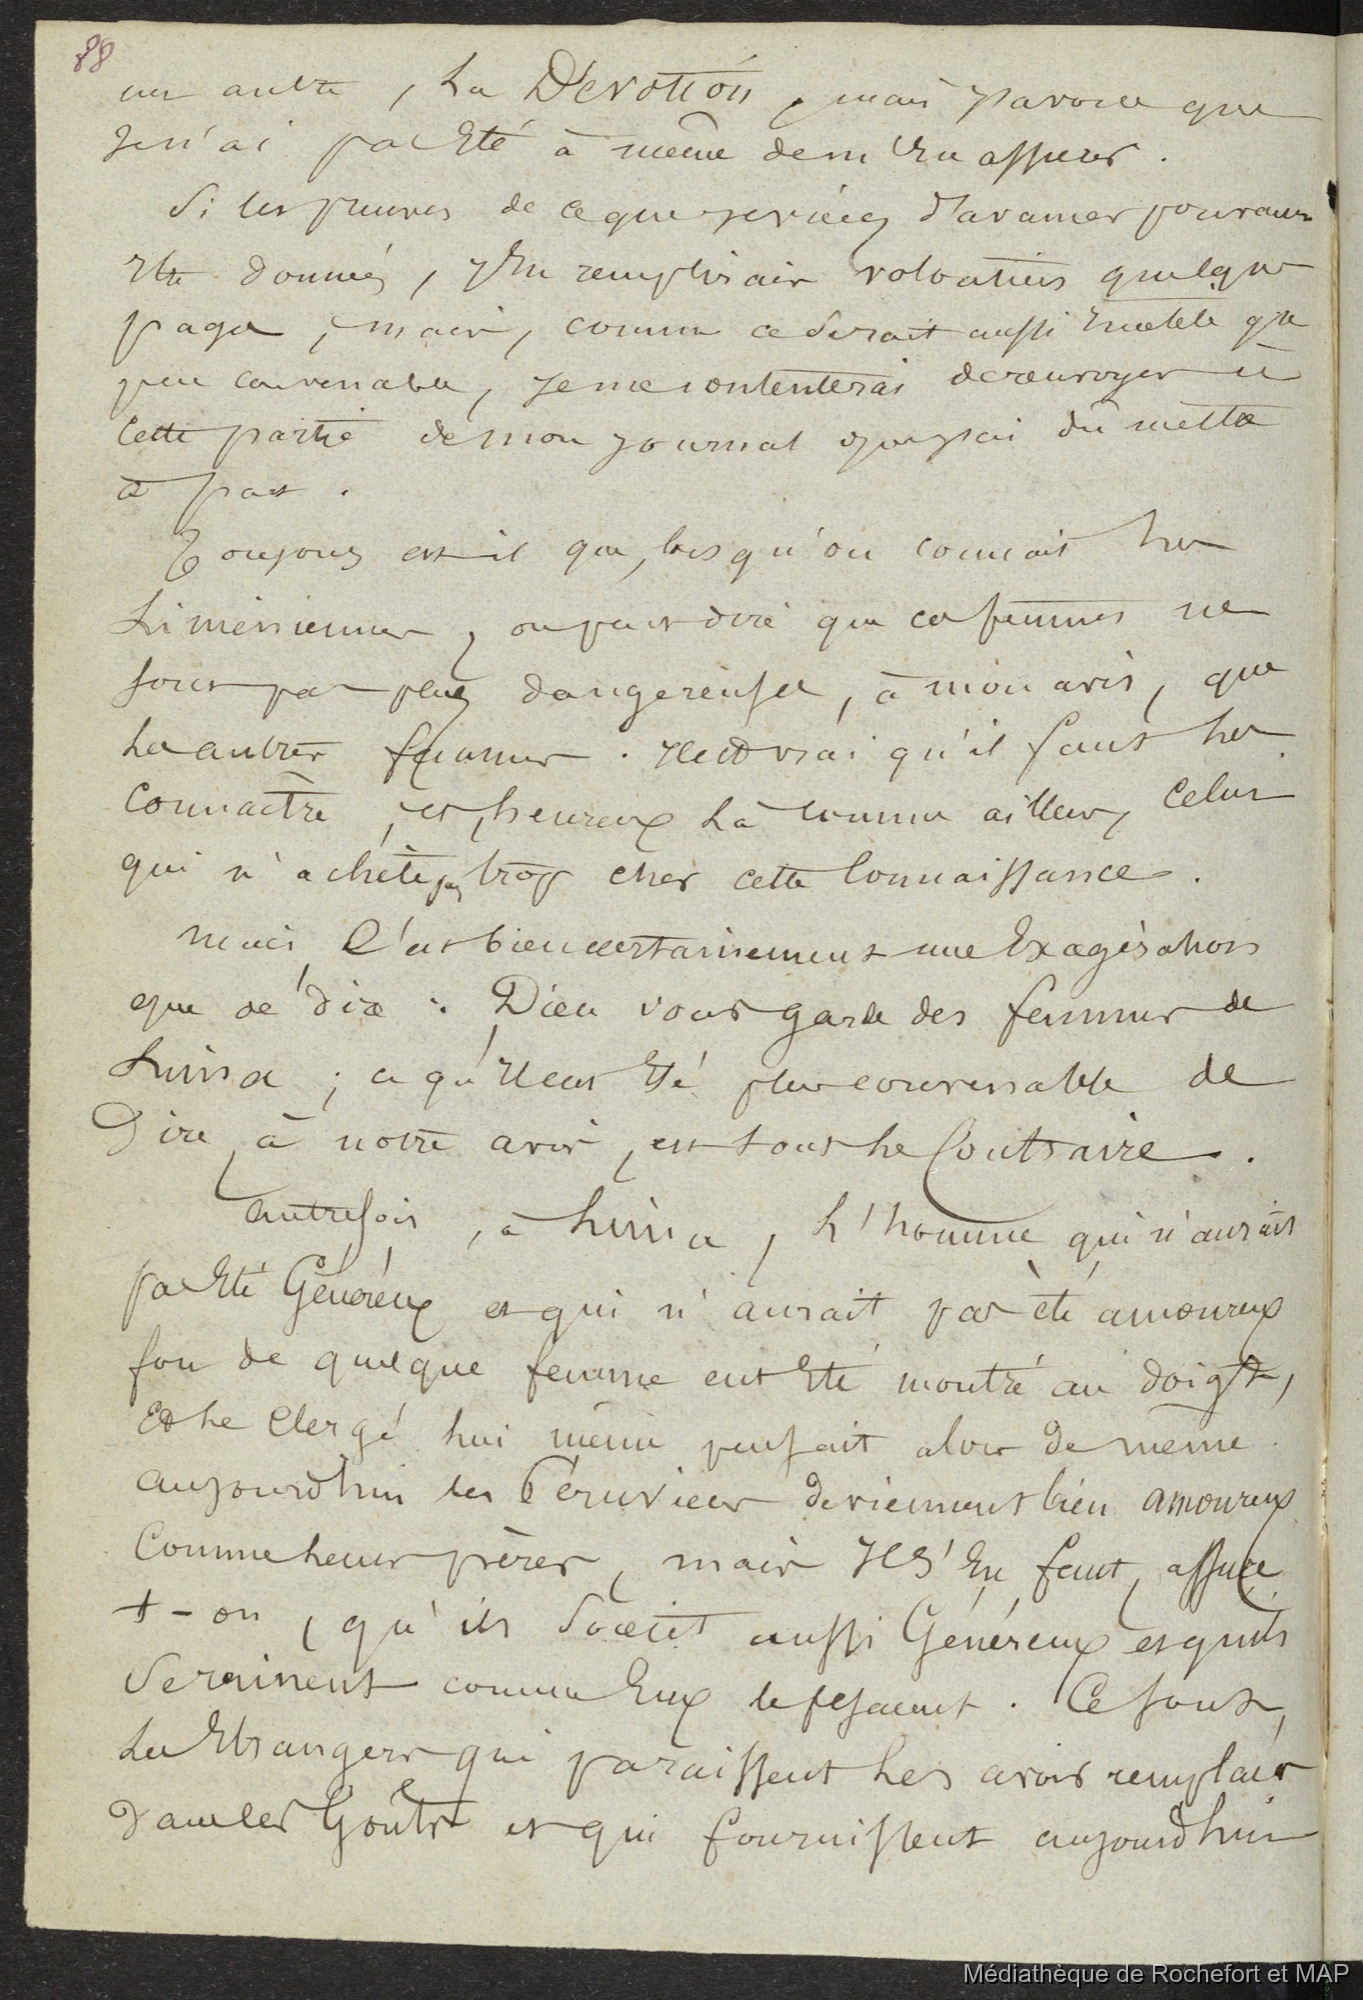 88
un autre, La Dévotion, mais j'avoue que
je n'ai pas Eté à même de m'En assurer.
Si les preuves de ce que je viens d'avancer pouvaient
Etre données, j'En remplirais volontiers quelques
pages, mais, comme ce serait aussi Inutile que
peu convenable, je me contenterai de renvoyer à
cette partie de mon journal que j'ai dû mettre
à part.
Toujours est-il que, lorsqu'on connait les
Liméniennes, on peut dire que ces femmes ne
sont pas plus dangereuses, à mon avis, que
les autres femmes. Il est vrai qu'il faut les
connaître, et, heureux là comme ailleurs, celui
qui n'achète pas trop cher cette connaissance.
mais C'est bien certainement une Exagération
que de dire : Dieu vous garde des femmes de
Lima ; ce qu'Il eut Eté plus convenable de
Dire, à notre avis, est tout le Contraire.
autrefois, à Lima, L'homme qui n'aurait
pas Eté Généreux et qui n'aurait pas été amoureux
fou de quelque femme eut Eté montré au doigt,
Et le Clergé lui même pensait alors de même.
aujourd'hui les Péruviens deviennent bien amoureux
Comme leurs pères, mais Il S'En faut, assure
t-on, qu'ils soient aussi Généreux et qu'ils
se ruinent comme Eux le fesaient. Ce sont
les Etrangers qui paraissent les avoir remplacés
dans les Goûts et qui fournissent aujourd'hui
Médiathèque de Rochefort et MAP